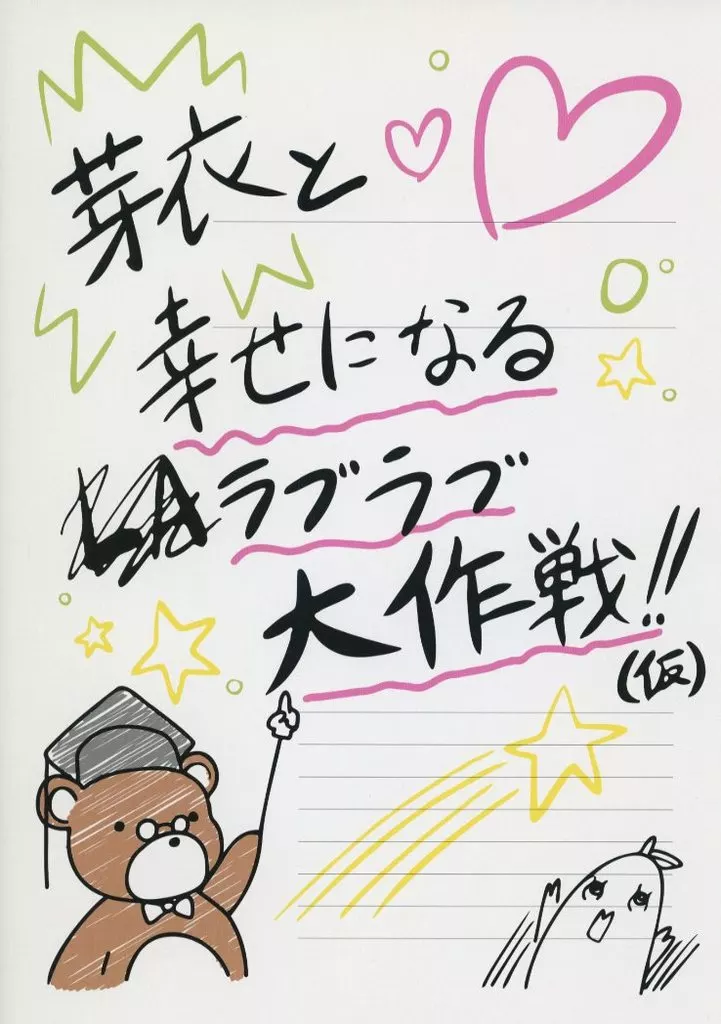 芽衣と
幸せになる
ラブラブ
大作戦!!
(仮)